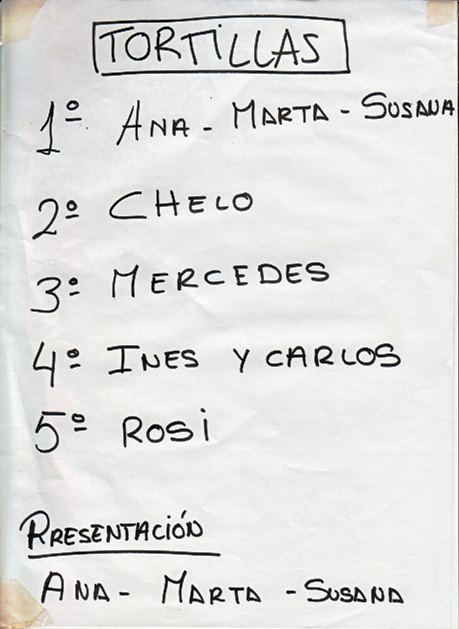 TORTILLAS
1º ANA - MARTA - SUSANA
2º CHELO
3º MERCEDES
4º INES Y CARLOS
5º ROSi
PRESENTACIÓN
ANA - MARTA - SUSANA